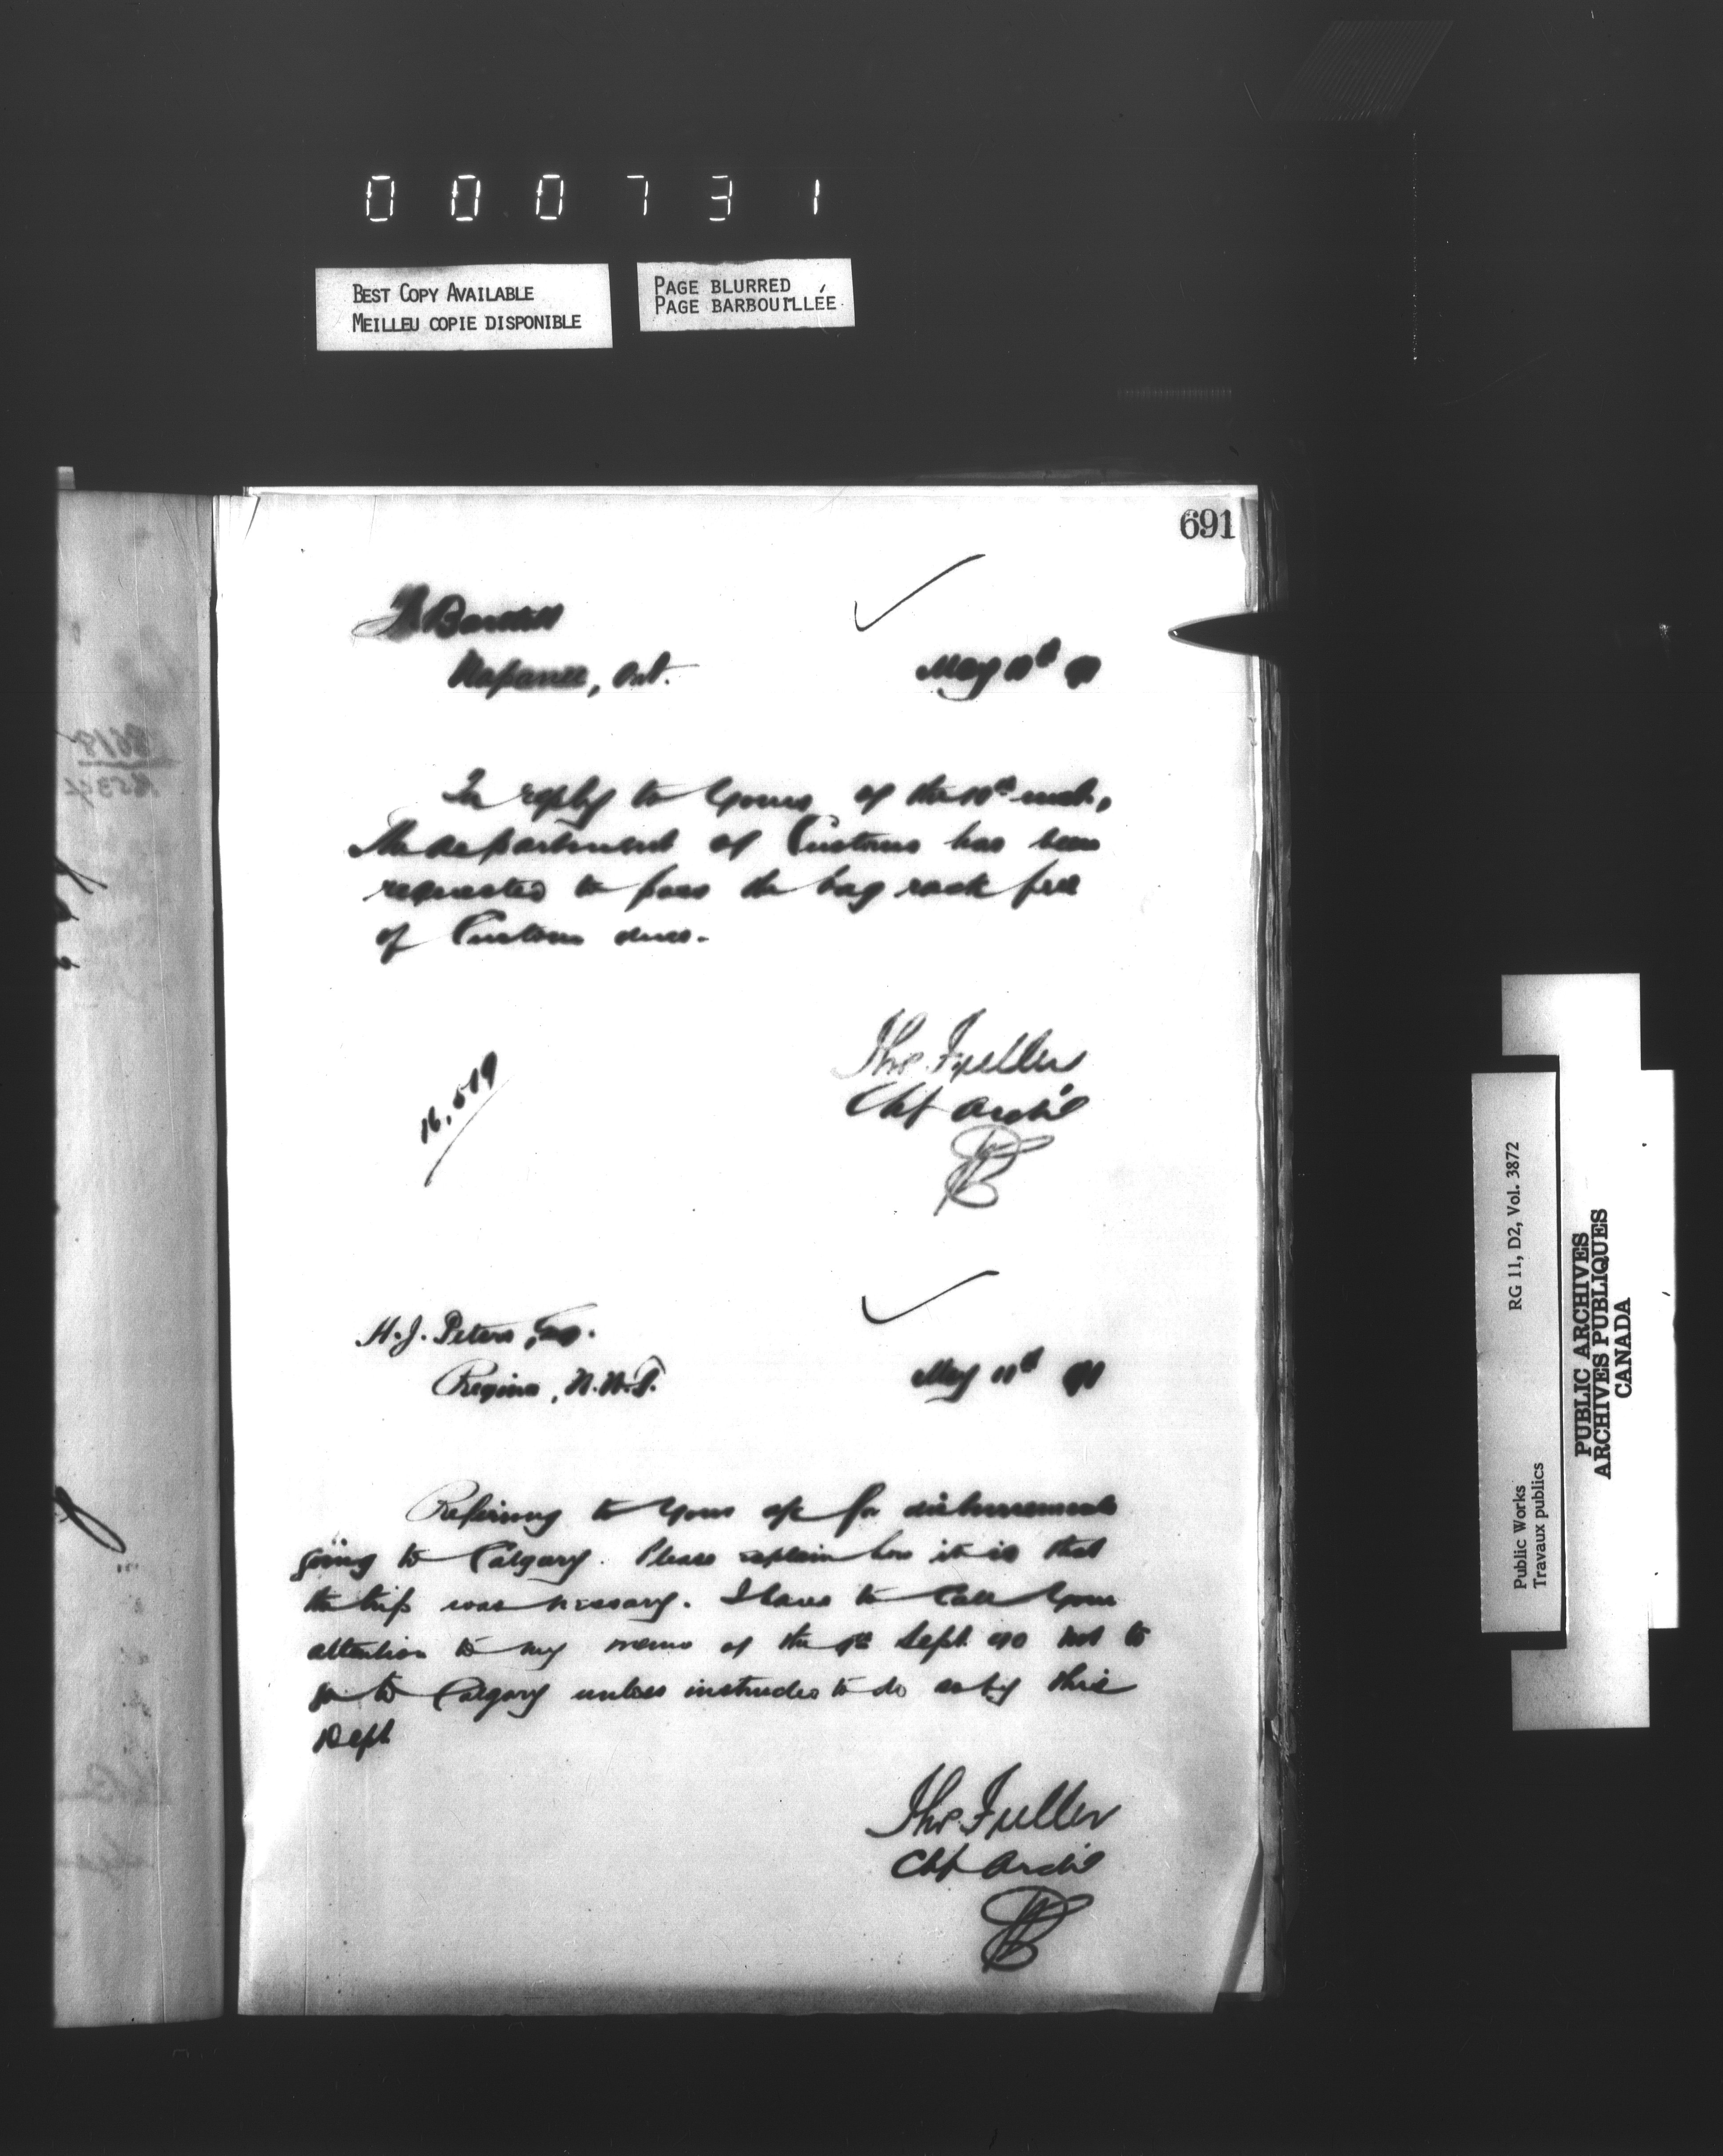 000731
BEST COPY AVAILABLE
MEILLEU COPIE DISPONIBLE
PAGE BLURRED
PAGE BARBOUILLÉE
691
Napanee, Ont.
May 11th 91
In reply to yours of the 10th inst,
the department of Customs has been
requested to pass the bag rack free
of Customs dues.
Thos. Fuller
Chf Archt
16,519
H. J. Peters, Esq.
Regina, N.W.T.
May 11th 91
Refering to your a/c for disbursements
going to Calgary. Please explain how it is that
the trip was nessary. I have to call your
attention to my memo of the Sept. 90 not to
go to Calgary unless instructed to do so by this
Dept
Thos. Fuller
Chf Archt
RG 11, D2, Vol. 3872
Public Works
Travaux publics
PUBLIC ARCHIVES
ARCHIVES PUBLIQUES
CANADA